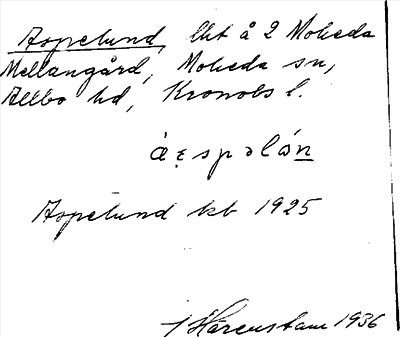 Aspelund, lht å 2 Moheda
Mellangård, Moheda sn,
Allbo hd, Kronobs l.
Aspelund kb 1925
J Harenstam 1936